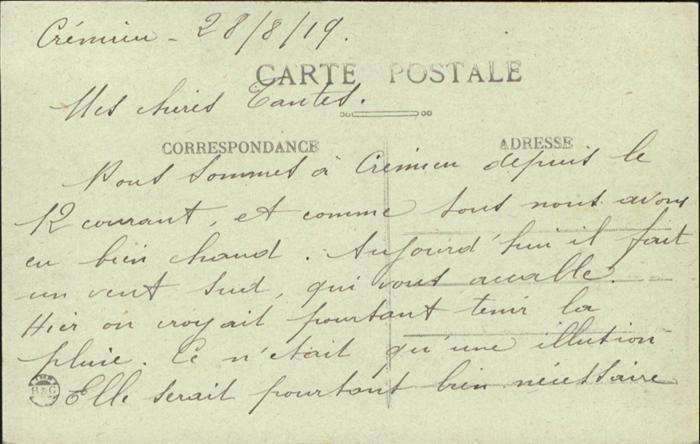 Crémieu - 28/8/19.
CARTE POSTALE
Mes chères Tantes.
CORRESPONDANCE
ADRESSE
Nous sommes à Crémieu depuis le
12 courant, et comme tous nous avons
eu bien chaud. Aujourd'hui il fait
un vent sud, qui vous accable.
Hier on croyait pourtant tenir la
pluie. Ce n'était qu'une illution
Elle serait pourtant bien nécéssaire